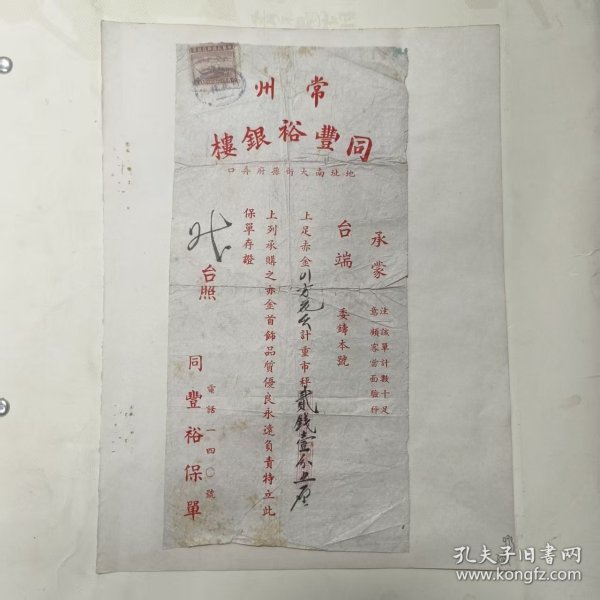 常州
同豐裕銀樓
地址南大街縣府弄口
承蒙
注意
該單計數十足
顧客當面驗份
台端 委鑄本號
上足赤金 計重市秤貳錢壹分五厘
上列承購之赤金首飾品質優良永遠負責特立此
保單存證
台照
電話一四〇號
同豐裕保單
孔夫子旧书网
www.kongfz.com